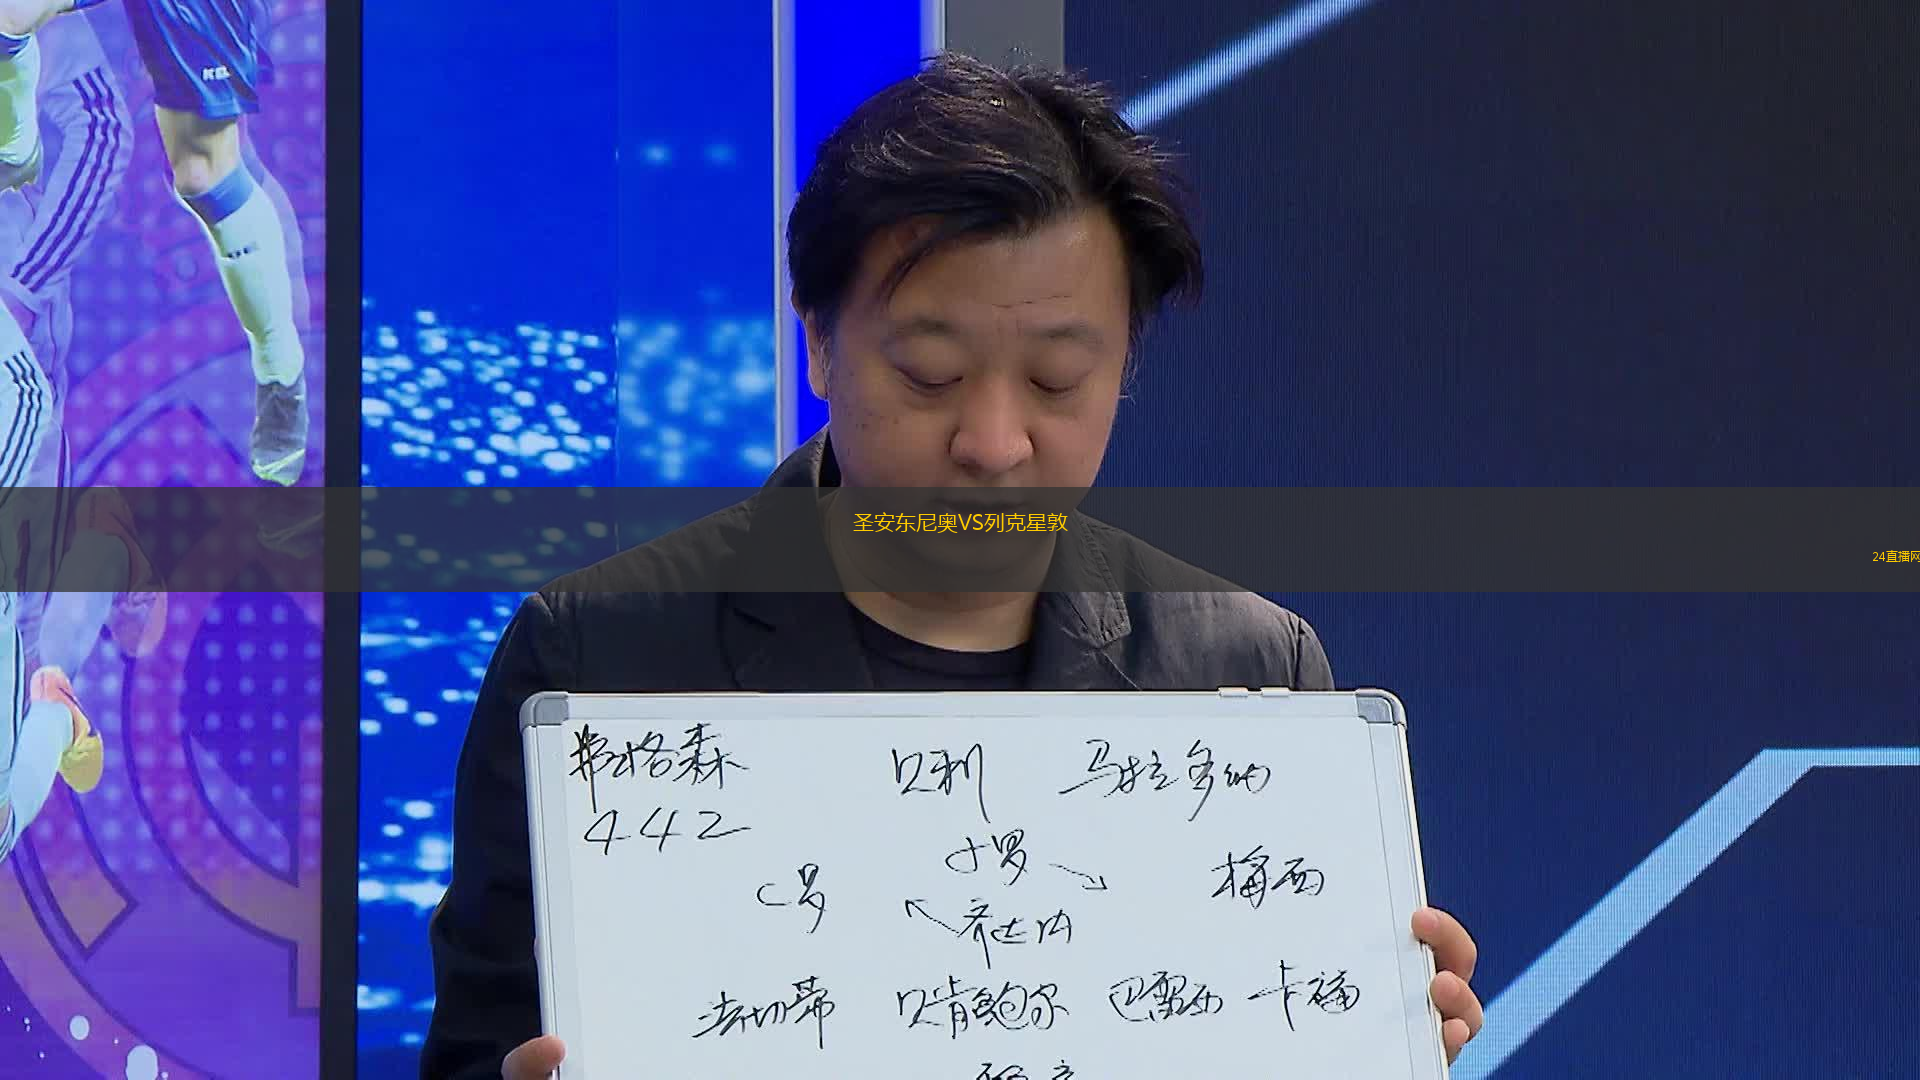 圣安东尼奥VS列克星敦
24直播网
弗格森 贝利 马拉多纳
442
小罗
C罗 梅西
齐达内
法切蒂 贝肯鲍尔 巴雷西 卡福